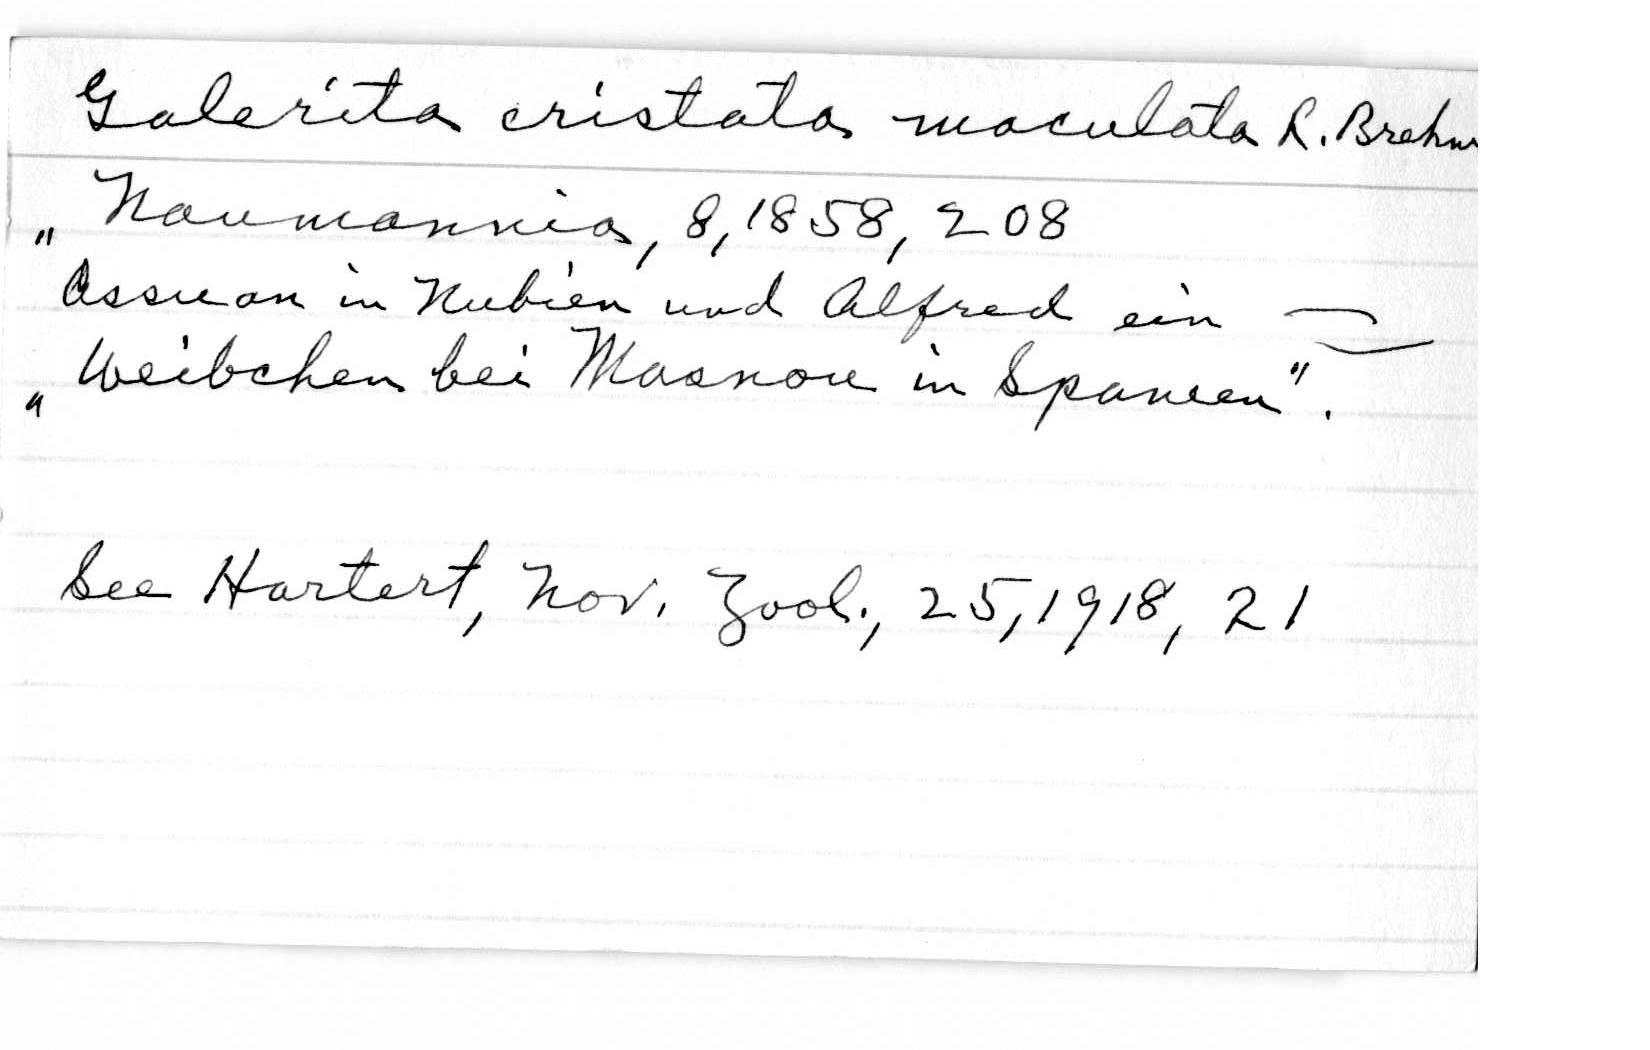 Galerita cristata maculata R. Brehm
Naumannia, 8, 1858, 208
„Assuan in Nubien und Alfred ein
„Weibchen bei Masnou in Spanien".
See Hartert, Nov. Zool., 25, 1918, 21